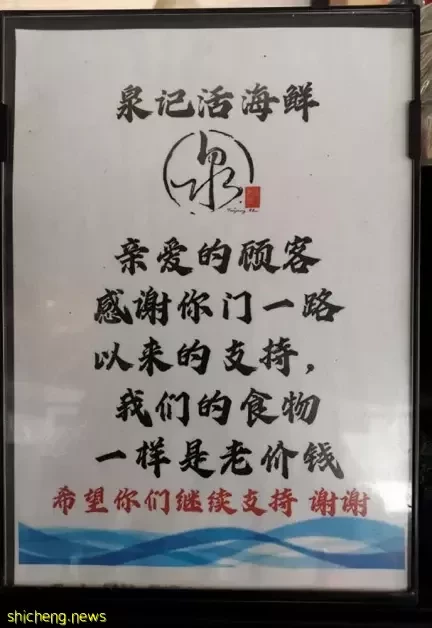 泉记活海鲜
泉
亲爱的顾客
感谢你门一路
以来的支持，
我们的食物
一样是老价钱
希望你们继续支持 谢谢
shicheng.news